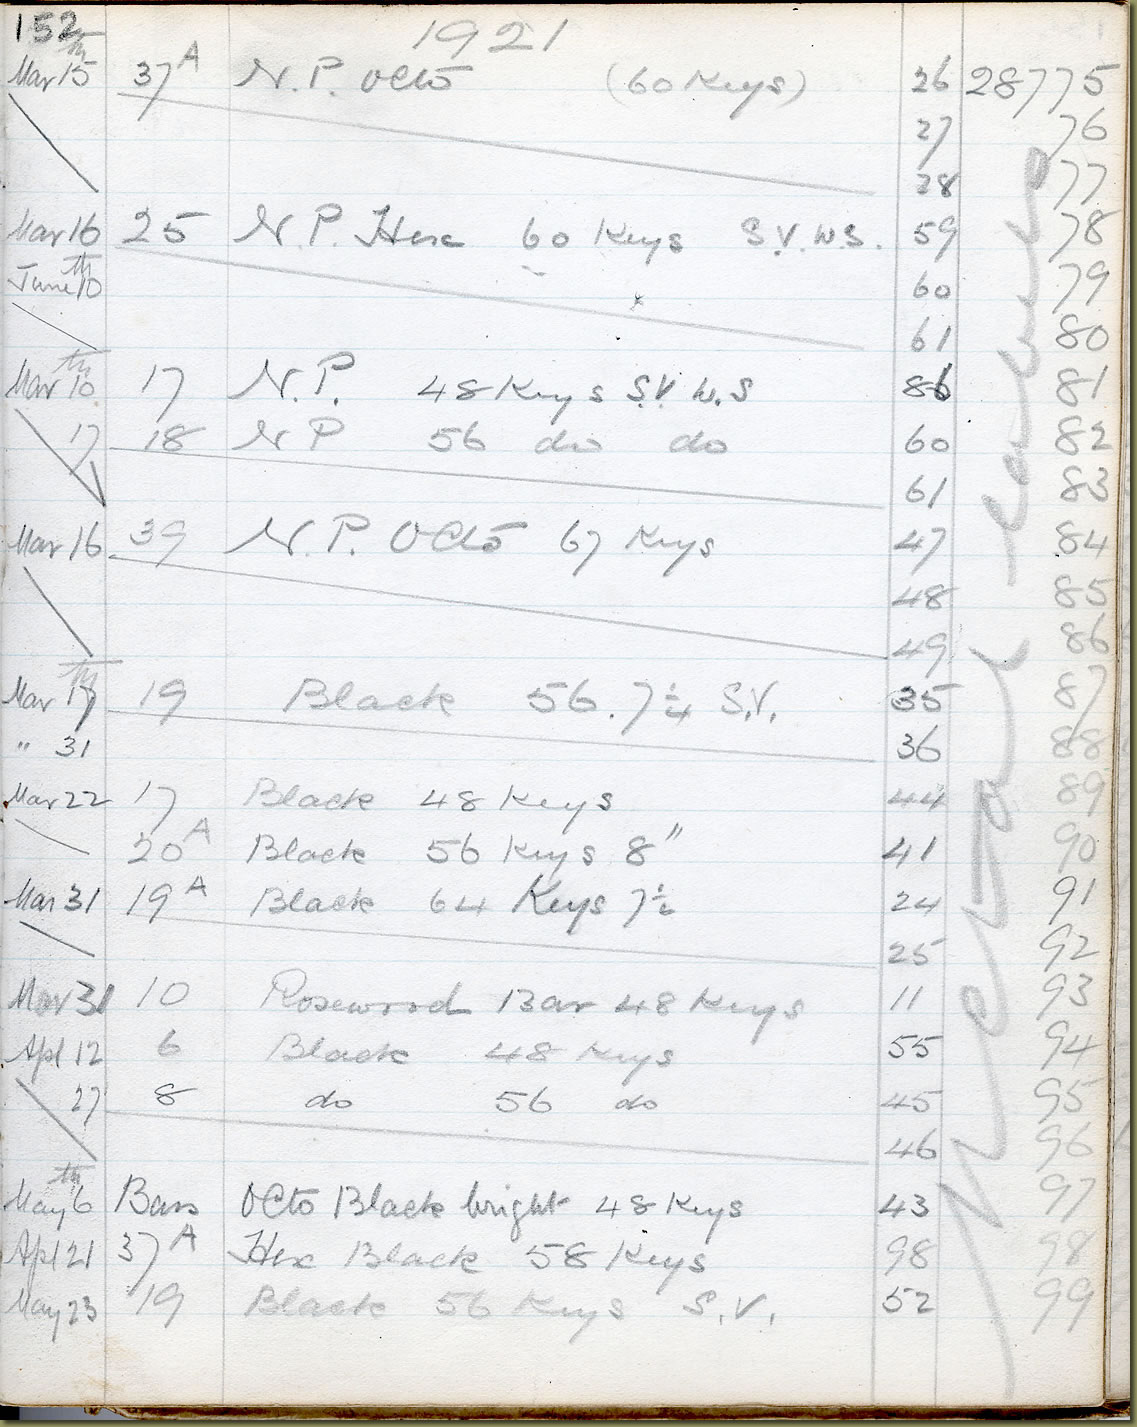 152 1921
Mar 15th 37A N.P. Octo (60 Keys) 26 28775
27 76
28 77
Mar 16 25 N.P. Hex 60 Keys S.V. W.S. 59 78
June 10th 60 79
x 61 80
Mar 10th 17 N.P. 48 Keys S.V. W.S 86 81
17 18 N P 56 do do 60 82
61 83
Mar 16 39 N.P. Octo 67 Keys 47 84
48 85
49 86
Mar 17th 19 Black 56. 7 1/4 S.V. 35 87
" 31 36 88
Mar 22 17 Black 48 Keys 44 89
20A Black 56 Keys 8" 41 90
Mar 31 19A Black 64 Keys 7 1/2 24 91
25 92
Mar 31 10 Rosewood Bar 48 Keys 11 93
Apl 12 6 Black 48 Keys 55 94
27 8 do 56 do 45 95
46 96
May 6th Bass Octo Black bright 48 Keys 43 97
Apl 21 37A Hex Black 58 Keys 98 98
May 23 19 Black 56 Keys S.V. 52 99